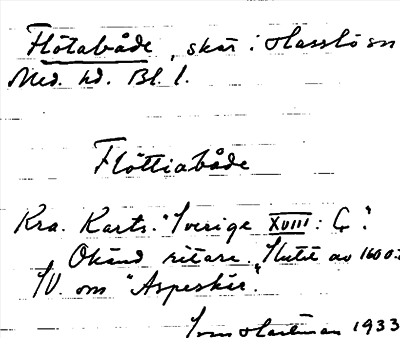 Flötabåde, skär i Hasslö sn
Med. hd. Bl. l.
Flöttiabåde
Kra. Karts. "Sverige XVIII: Ç".
Okänd ritare. Slutet av 1600.
SV. om "Asperskär."
1933